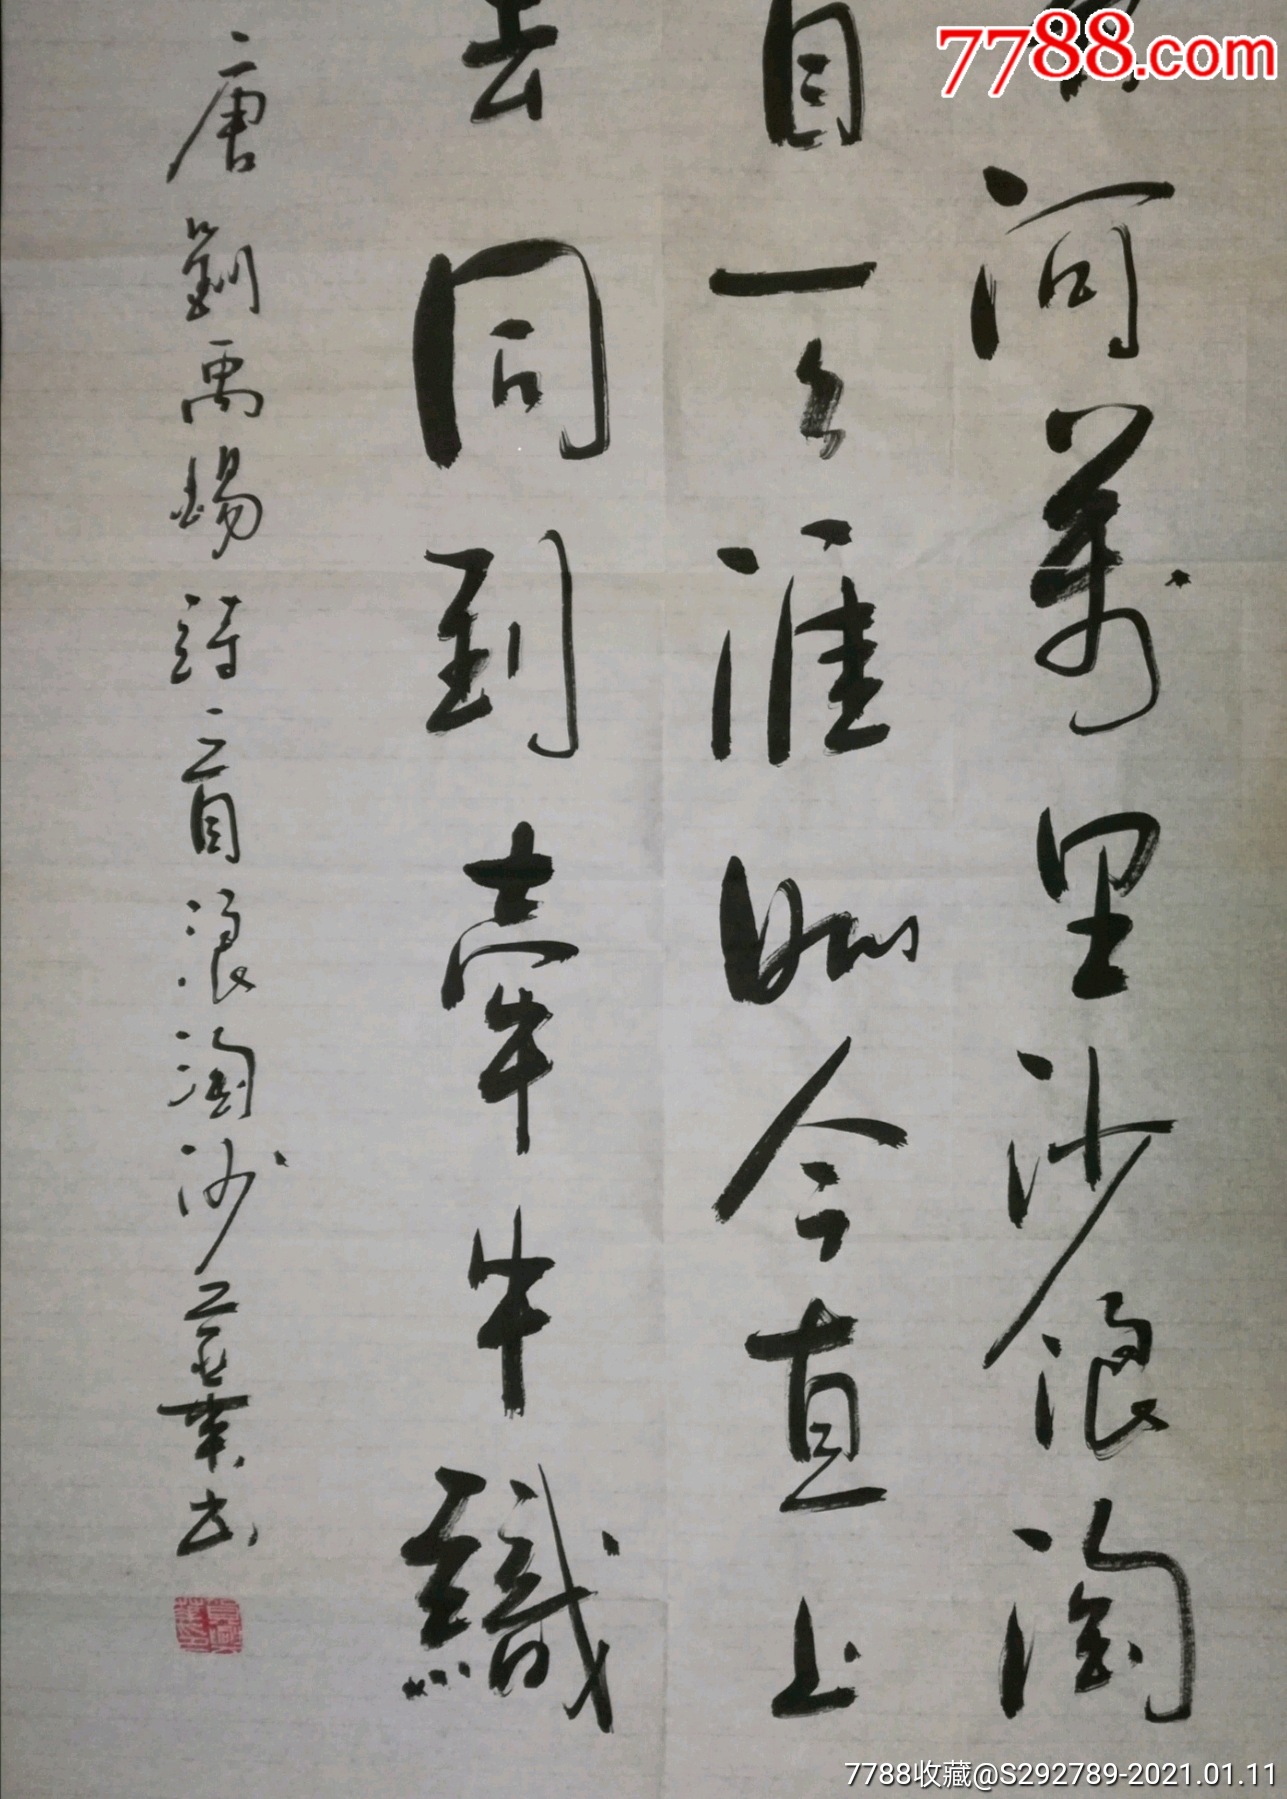 7788.com
河萬里沙浪淘
自天涯如今直上
去同到牽牛織
唐劉禹錫詩一首浪淘沙業书
7788收藏@S292789-2021.01.11